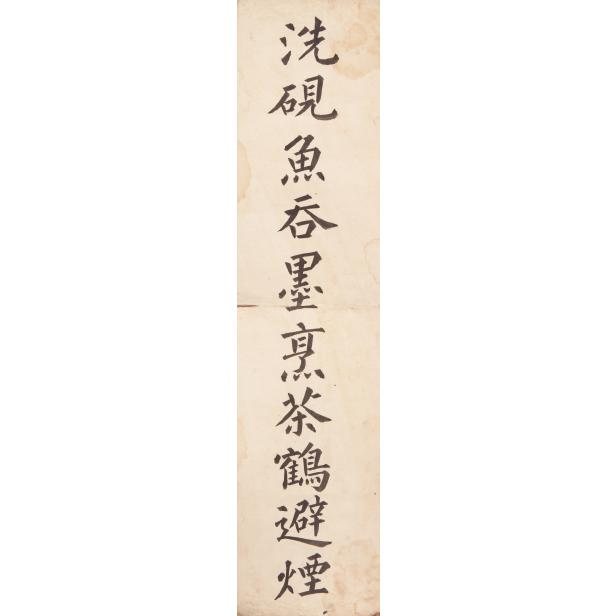 洗硯魚吞墨烹茶鶴避煙